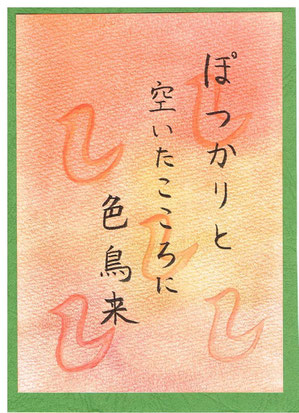 ぽつかりと
空いたこころに
色鳥来